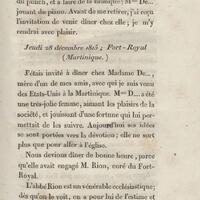 du punch, et à faire de la musique; Mme De...
jouant du piano. Avant de me retirer, j'ai reçu
l'invitation de venir dîner chez elle; je m'y
rendrai avec plaisir.
Jeudi 28 décembre 1815; Fort-Royal
(Martinique.)
J'étais invité à dîner chez Madame De...,
mère d'un de mes amis, avec qui je mis venu
des Etats-Unis à la Martinique. Mme D... a été
une très-jolie femme, aimant les plaisirs de la
société, et jouissant d'une fortune qui lui per-
mettait de les suivre. Aujourd'hui ses idées
se sont portées vers la dévotion; elle ne sort
plus que pour aller à l'église.
Nous devions dîner de bonne heure, parce
qu'elle avait engagé M. Rion, curé du Fort-
Royal.
L'abbé Rion est un vénérable ecclésiastique;
dès qu'on le voit, on a pour lui de l'estime et